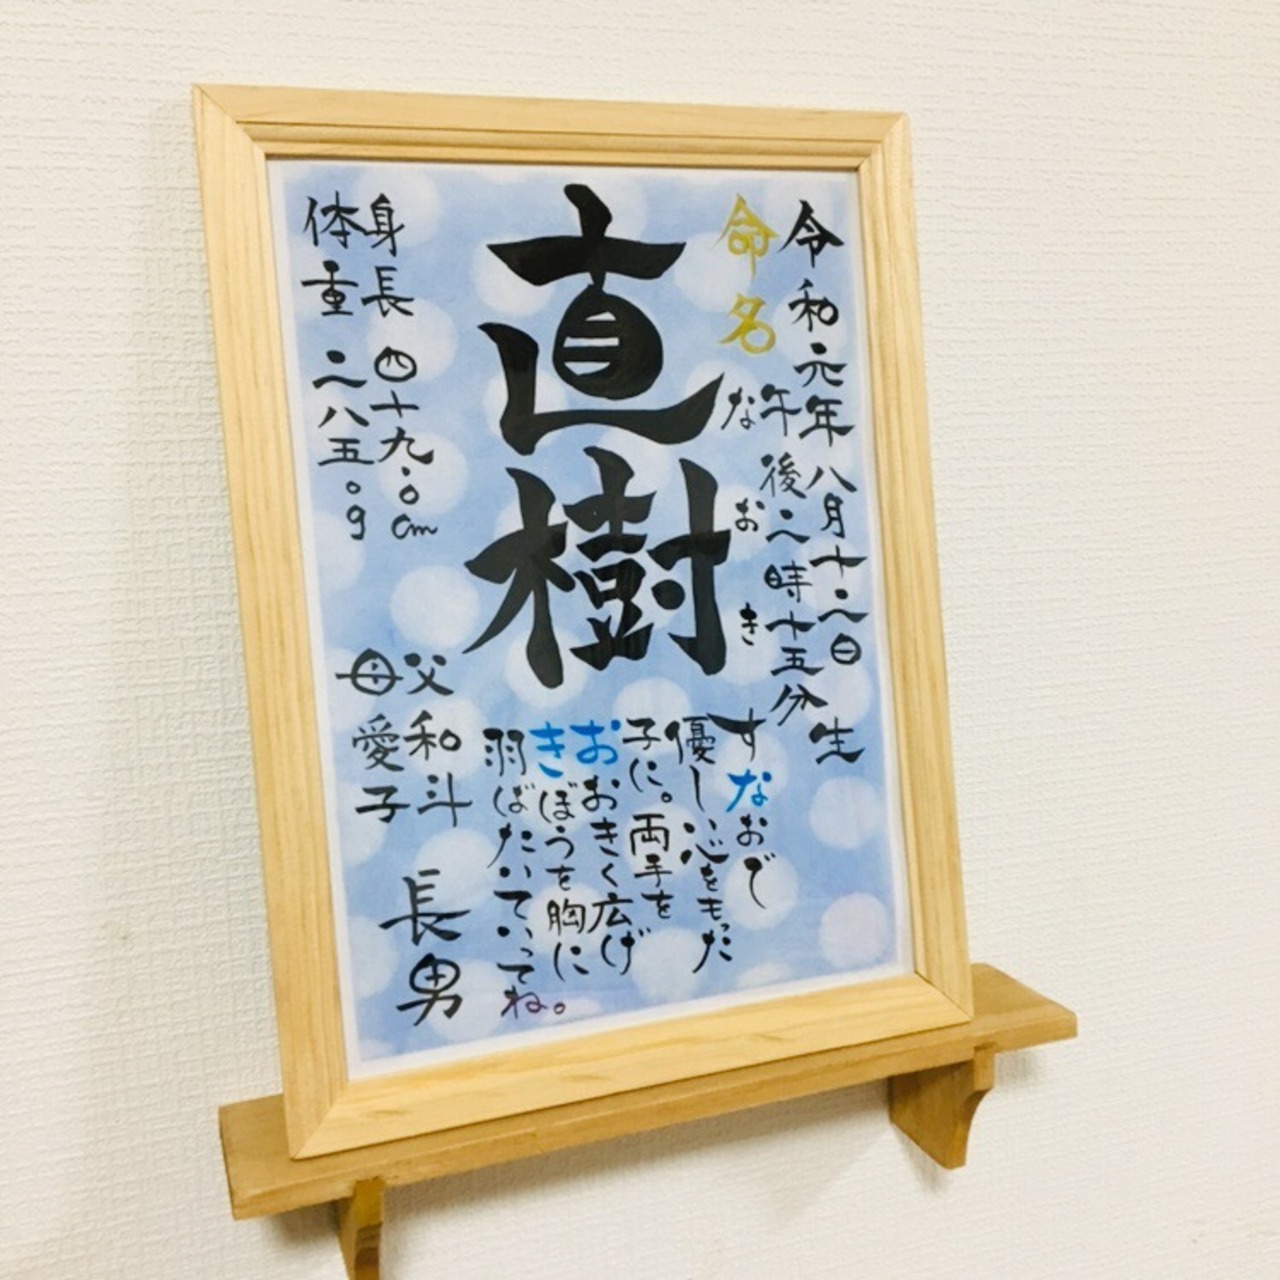 令和元年八月十八日生
午後二時十五分
命名
なおき
直樹
身長 四十九.〇cm
体重 二八五〇g
すなおで
優しい心をもった
子に。両手を
おおきく広げ
きぼうを胸に
羽ばたいていってね。
父 和斗
母 愛子
長男